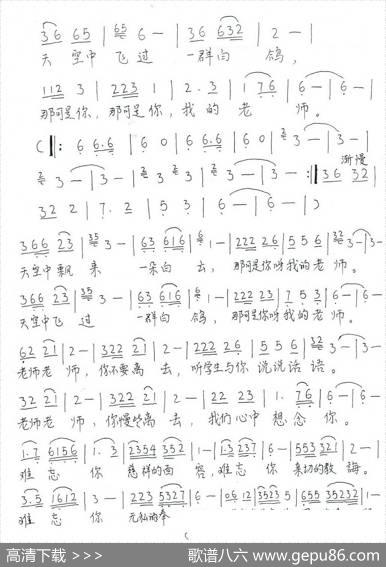 3 6 6 5 | 6 5 6 – | 3 6 6 3 2 | 2 – |
天 空中 飞 过 一群白 鸽,
1 1 2 3 | 2 2 3 1 | 2 . 3 | 1 7 6 | 6 – | 6 – |
那可是你,那可是你,我 的 老 师。
( ‖: 6 6.6 | 6 0 | 6 6.6 | 6 0 | 3 – | 3 – |
渐慢
3 – | 3 – | 3 3 | 3 3 | 3 – | 3 – :‖ 3 6 3 2 |
3 2 2 | 7 . 2 | 5 3 | 6 – | 6 – | )
3 6 6 2 3 | 3 5 3 – | 6 3 6 1 6 | 6 1 – | 2 2 2 2 6 | 5 5 6 | 3 2 3 – | 3 – |
天空中飘 来 一朵白 云,那可是你呀我的老 师。
3 6 6 2 3 | 3 5 3 – | 6 3 6 1 6 | 6 1 – | 2 2 2 2 3 | 7 5 3 | 6 – | 6 – |
天空中飞 过 一群白 鸽,那可是你呀我的老 师。
6 2 2 1 | 2 – | 3 2 2 2 1 | 2 – | 2 2 2 2 6 | 5 5 6 | 3 2 3 – | 3 – |
老师老 师,你不要离 去,听学生与你 说说话 语。
3 2 2 1 | 2 – | 3 2 2 2 1 | 2 – | 2 2 2 3 | 1 . 7 6 | 6 – | 6 – |
老师老 师,你慢些离 去,我们心中 想 念 你。
1 . 7 6 1 5 6 | 1 . 3 | 2 3 5 4 3 5 2 | 1 – | 1 . 3 2 3 7 | 6 – | 5 5 3 3 2 1 | 2 – |
难 忘 你 慈祥的面 容,难忘 你 亲切的教 诲。
3 . 5 1 6 1 2 | 3 – | 2 2 3 5 3 2 7 | 6 – | 0 6 1 2 | 3 5 2 3 5 | 6 5 5 3 5 2 3 2 | 1 – |
难 忘 你 无私的奉
高清下载 >>>
歌谱八六 www.gepu86.com